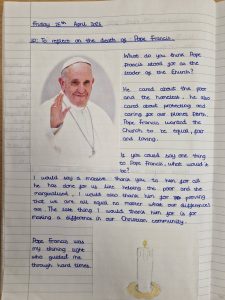 Friday 25th April 2025
LO: To reflect on the death of Pope Francis.
What do you think Pope
Francis stood for as the
leader of the Church?
He cared about the poor
and the homeless, he also
cared about protecting and
caring for our planet Earth.
Pope Francis wanted the
Church to be equal, fair
and loving.
If you could say one thing
to Pope Francis, what would it
be?
I would say a massive thank you to him for all
he has done for us like helping the poor and the
marginalised, I would also thank him for proving
that we are all equal no matter what our differences
are. The last thing I would thank him for is for
making a difference in our Christian community.
Pope Francis was
my shining light
who guided me
through hard times.